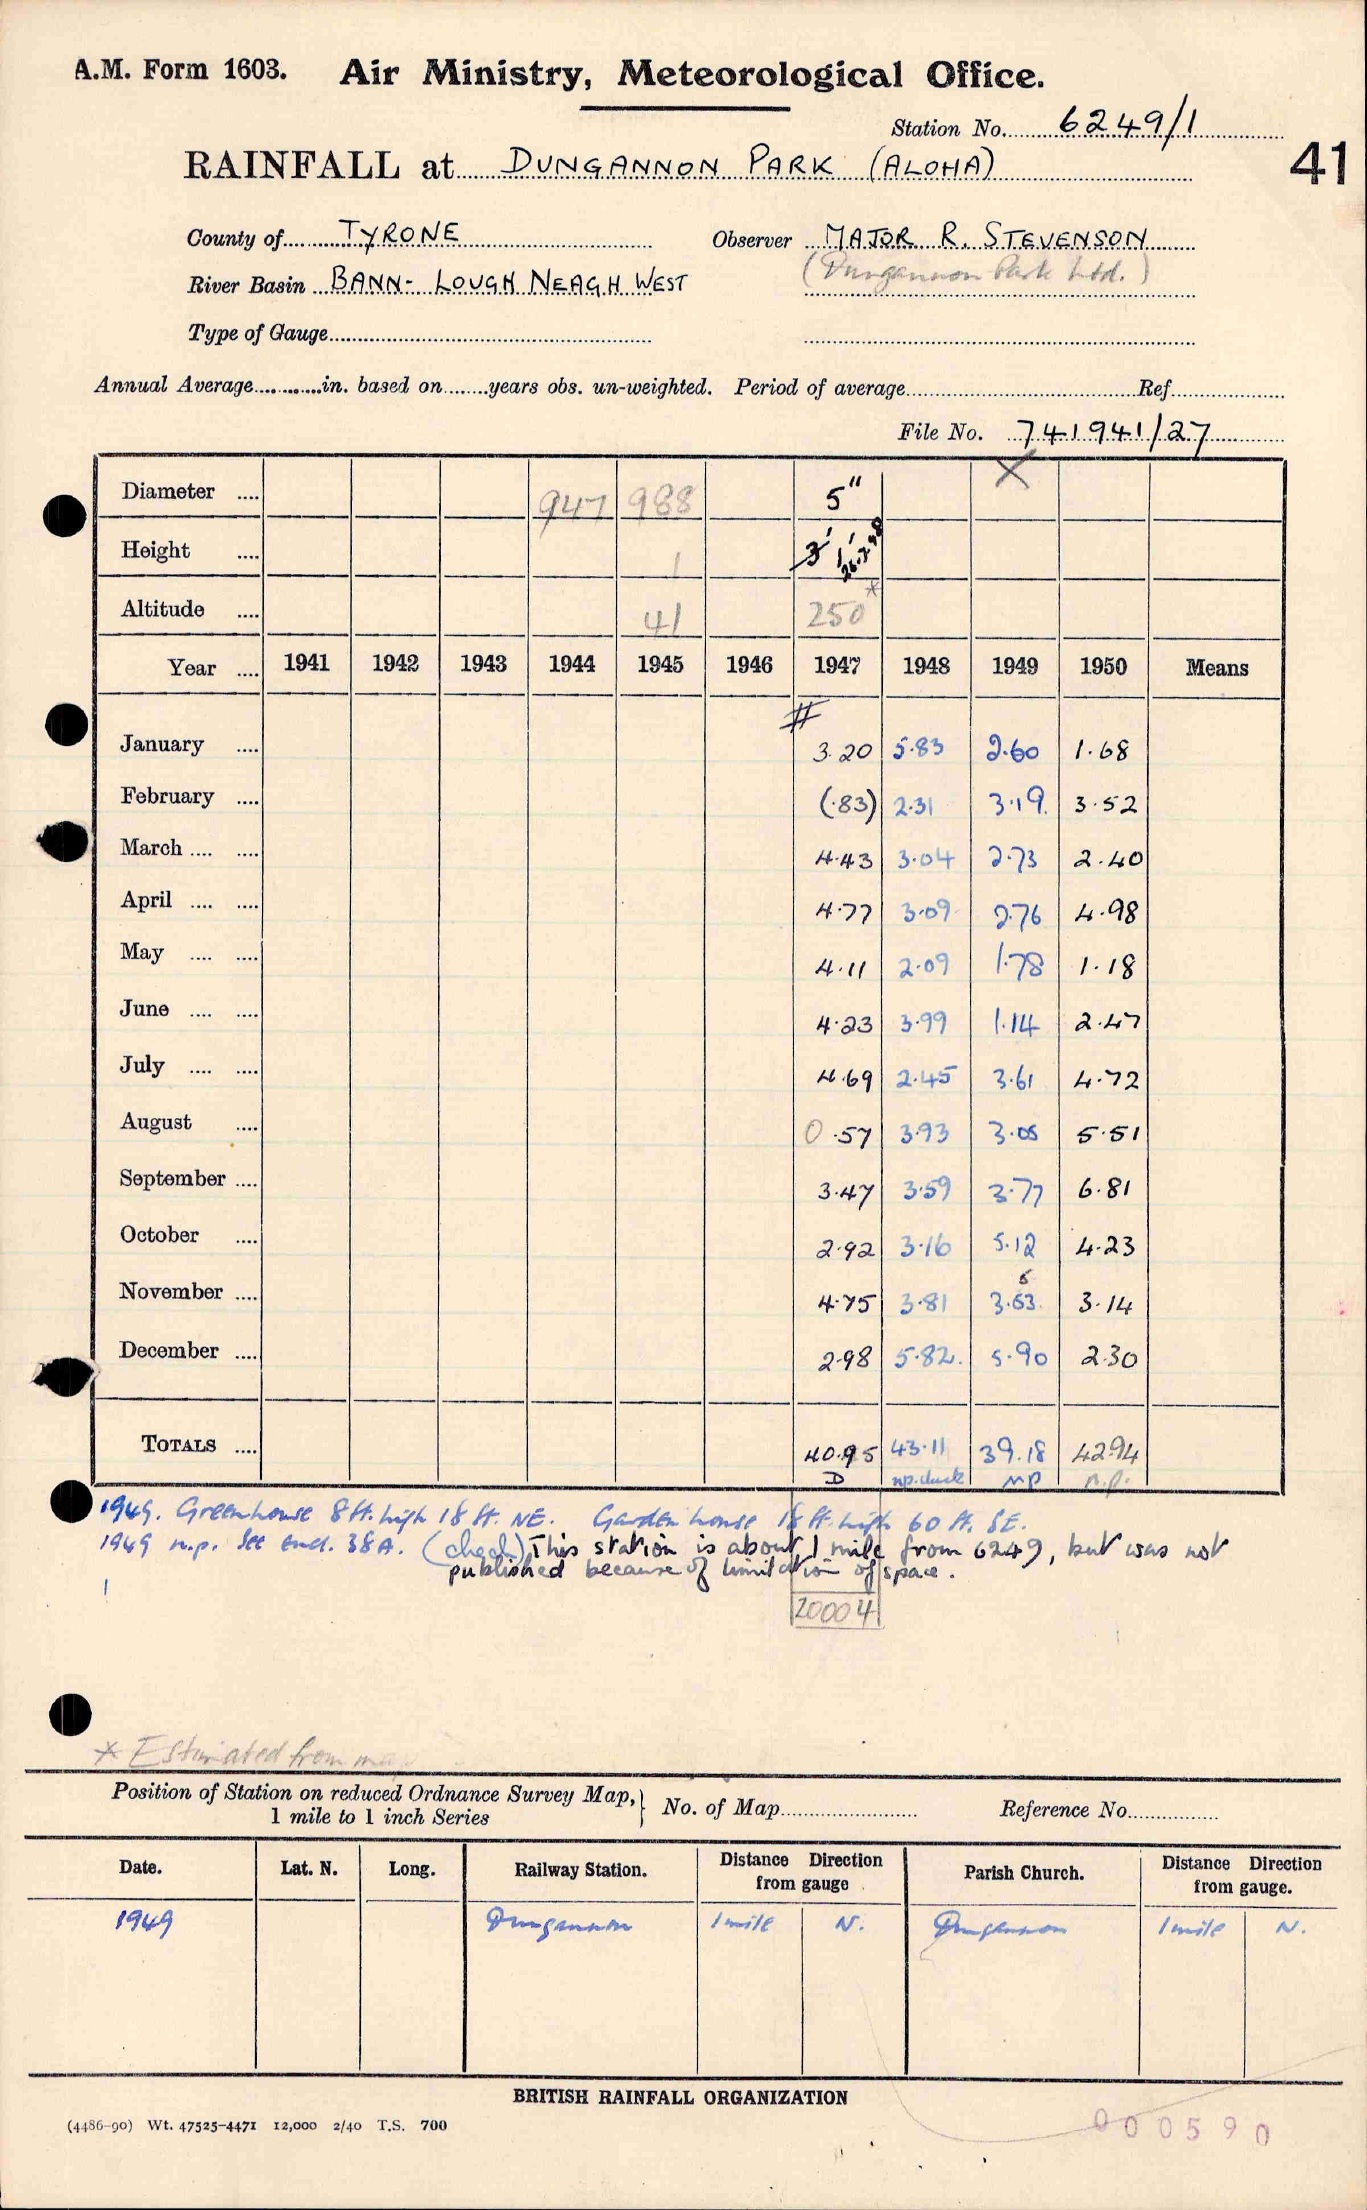 A.M. Form 1603. Air Ministry, Meteorological Office.
Station No. 6249/1
RAINFALL at DUNGANNON PARK (ALOHA)
41
County of TYRONE Observer MAJOR R. STEVENSON
River Basin BANN- LOUGH NEAGH WEST (Dungannon Park Ltd.)
Type of Gauge
Annual Average in. based on years obs. un-weighted. Period of average Ref
File No. 741941/27
X
Diameter 947 988 5"
Height 1 3' 1' 26.2.48
Altitude 41 250 *
Year 1941 1942 1943 1944 1945 1946 1947 1948 1949 1950 Means
#
January 3.20 5.83 2.60 1.68
February (.83) 2.31 3.19 3.52
March 4.43 3.04 2.73 2.40
April 4.77 3.09 2.76 4.98
May 4.11 2.09 1.78 1.18
June 4.23 3.99 1.14 2.47
July 4.69 2.45 3.61 4.72
August 0.57 3.93 3.05 5.51
September 3.47 3.59 3.77 6.81
October 2.92 3.16 5.12 4.23
6
November 4.75 3.81 3.53 3.14
December 2.98 5.82 5.90 2.30
TOTALS 40.95 43.11 39.18 42.94
D n.p. duck NP n.p.
1949. Greenhouse 8ft. high 18 ft. NE. Garden house 18 ft. high 60 ft. SE.
1949 n.p. See encl. 38A. (check) This station is about 1 mile from 6249, but was not
published because of limitation of space.
20004
* Estimated from map
Position of Station on reduced Ordnance Survey Map, 1 mile to 1 inch Series } No. of Map Reference No.
Date. Lat. N. Long. Railway Station. Distance Direction from gauge Parish Church. Distance Direction from gauge.
1949 Dungannon 1 mile N. Dungannon 1 mile N.
BRITISH RAINFALL ORGANIZATION
(4486-90) Wt. 47525-4471 12,000 2/40 T.S. 700
000590